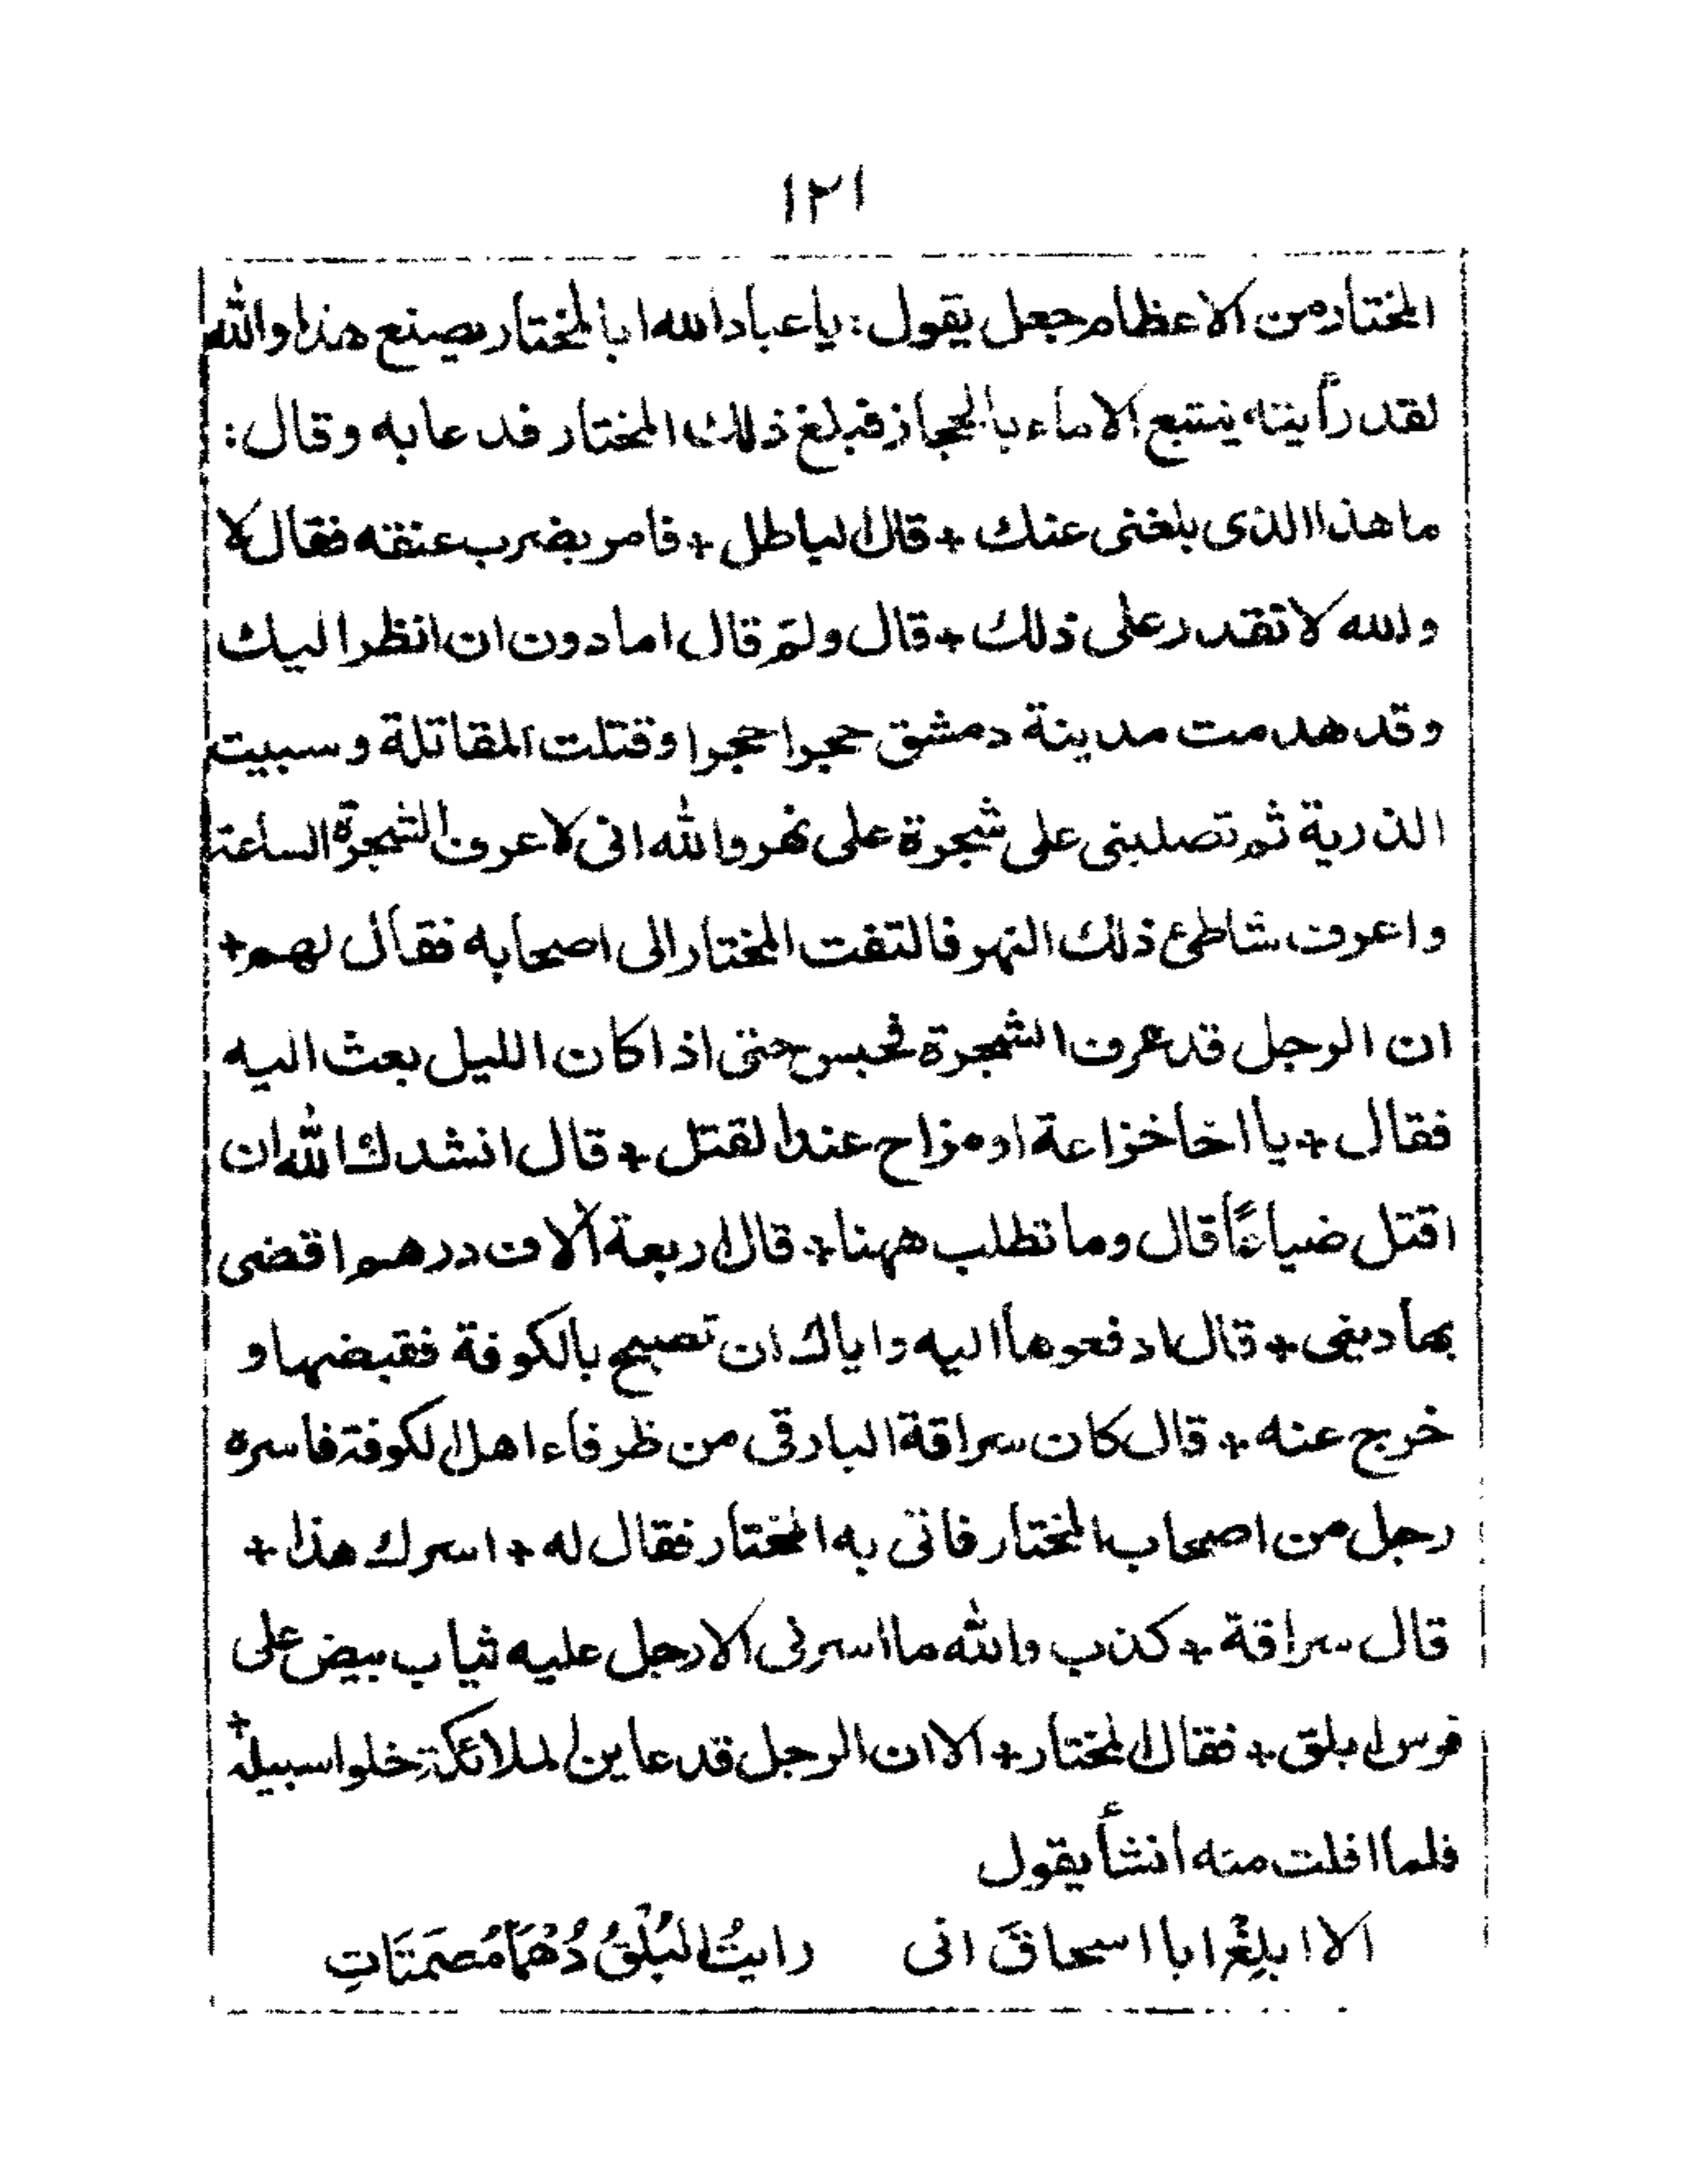 ١٢١
المختار من الاعظام جعل يقول: يا عباد الله ابا المختار يصنع هذا والله
لقد رأيته يتتبع الاماء بالحجاز فبلغ ذلك المختار فدعا به وقال:
ما هذا الذى بلغنى عنك + قال الباطل + فامر بضرب عنقه فقال لا
والله لا تقدر على ذلك + قال ولم قال اما دون ان انظر اليك
وقد هدمت مدينة دمشق حجرا حجرا وقتلت المقاتلة وسبيت
الذرية ثم تصلبنى على شجرة على نهر والله انى لاعرف الشجرة الساعة
واعرف شاطئ ذلك النهر فالتفت المختار الى اصحابه فقال لهم +
ان الرجل قد عرف الشجرة فحبس حتى اذا كان الليل بعث اليه
فقال + يا اخا خزاعة او مزاح عند القتل + قال انشدك الله ان
اقتل ضياعًا قال وما تطلب ههنا + قال اربعة آلاف درهم اقضى
بها دينى + قال ادفعوها اليه واياك ان تصبح بالكوفة فقبضها و
خرج عنه + قال كان سراقة البارقى من ظرفاء اهل الكوفة فاسره
رجل من اصحاب المختار فاتى به المختار فقال له + اسرك هذا +
قال سراقة + كذب والله ما اسرنى الا رجل عليه ثياب بيض على
فرس ابلق + فقال المختار + الا ان الرجل قد عاين الملائكة خلوا سبيله +
فلما افلت منه انشأ يقول
الا ابلغ ابا اسحاقَ انى رايتُ البُلْقُ دُهْمًا مُصمَتَاتِ